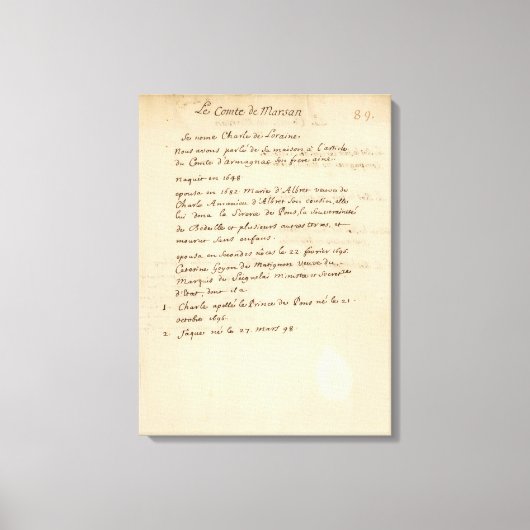 Le Comte de Marsan 89.
Se nome Charle de Loraine,
Nous avons parlé de sa maison à l'article
du Comte d'Armagnac son frère ainé.
naquit en 1648
epousa en 1682 Marie d'Albret veuve de
Charle Amanieu d'Albret son cousin, elle
lui dona la Sirerie de Pons, la souveraineté
de Bedeille et plusieurs autres terres, et
mourut sans enfans.
epousa en secondes noces le 22 fevrier 1696.
Caterine Goyon de Matignon veuve du
Marquis de Seignelai Ministre et Secretre
d'Etat, dont il a
1. Charle apellé le Prince de Pons né le 21.
octobre 1696.
2 Jaque né le 27 mars 98.